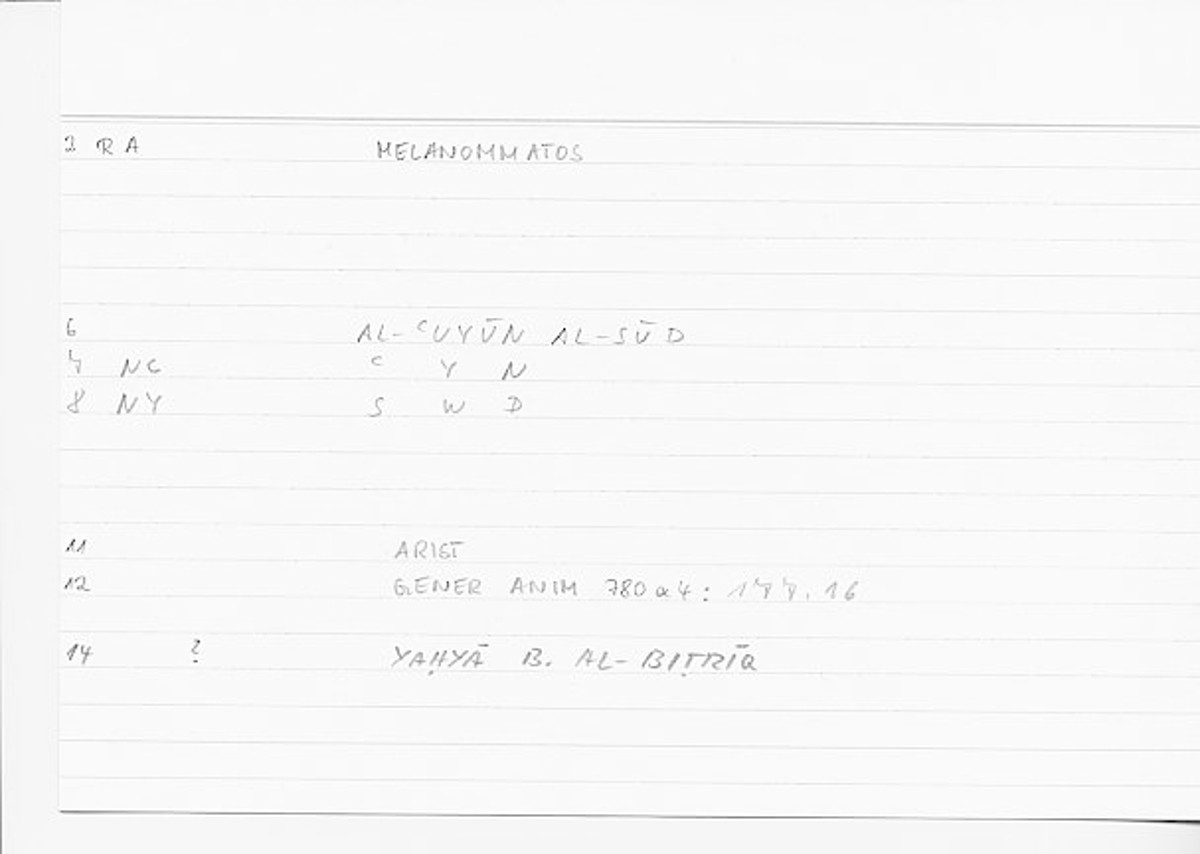 2 R A MELANOMMATOS
6 AL-ʿUYŪN AL-SŪD
7 NC ʿ Y N
8 NY S W D
11 ARIST
12 GENER ANIM 780a4: 177.16
14 ? YAḤYĀ B. AL-BIṬRĪQ